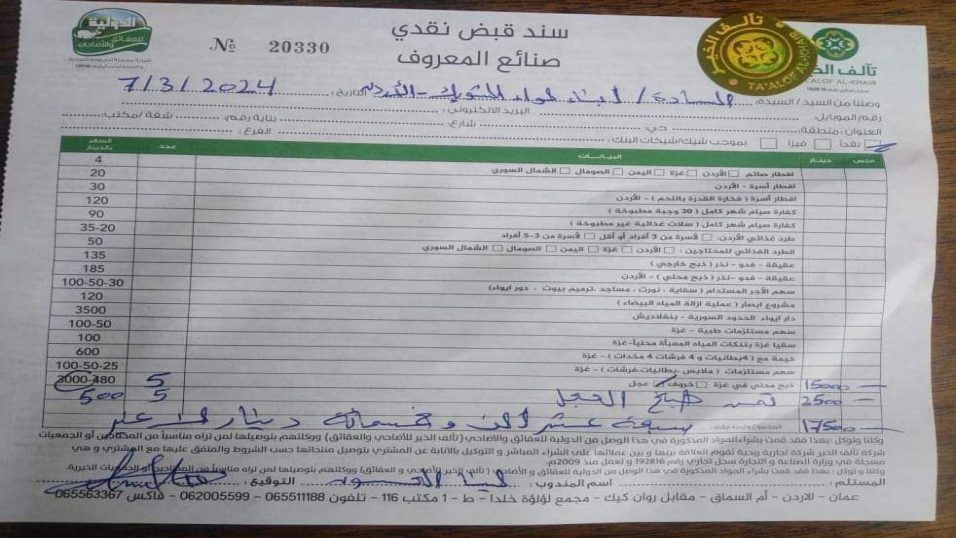 سند قبض نقدي
صنائع المعروف
№ 20330
الدولية
للعقائق والأضاحي
تآلف الخير
TA'ALOF AL-KHAIR
تآلف الخير
TA'ALOF AL-KHAIR
وصلنا من السيد / السيدة: السادة / أبناء لواء الشوبك - الأردن التاريخ: 7/3/2024
رقم الموبايل: البريد الالكتروني:
العنوان: منطقة: حي: شارع: بناية رقم: شقة / مكتب:
نقداً فيزا بموجب شيك/شيكات البنك: الفرع:
فلس دينار البيانات عدد السعر بالدينار
افطار صائم الأردن غزة اليمن الصومال الشمال السوري 4
افطار أسرة - الأردن 20
افطار أسرة ( فخارة القدرة باللحم ) - الأردن 30
كفارة صيام شهر كامل ( 30 وجبة مطبوخة ) 120
كفارة صيام شهر كامل ( سلات غذائية غير مطبوخة ) 90
طرد غذائي الأردن: لأسرة من 3 أفراد أو أقل لأسرة من 3-5 أفراد 35-20
الطرد الغذائي للمحتاجين: الأردن غزة اليمن الصومال الشمال السوري 50
عقيقة - فدو - نذر ( ذبح خارجي ) 135
عقيقة - فدو - نذر ( ذبح محلي ) - الأردن 185
سهم الأجر المستدام ( سقاية ، تورت ، مساجد ،ترميم بيوت ، دور ايواء) 100-50-30
مشروع ابصار ( عملية ازالة المياه البيضاء ) 120
دار ايواء الحدود السورية - بنغلاديش 3500
سهم مستلزمات طبية - غزة 100-50
سقيا غزة بتنكات المياه المعبأة محلياً-غزة 100
خيمة مع ( 4بطانيات و 4 فرشات 4 مخدات ) - غزة 600
سهم مستلزمات ( ملابس ،بطانيات،فرشات ) - غزة 100-50-25
15000 — ذبح محلي في غزة خروف عجل 5 3000-480
2500 — ثمن طبخ العجل 5 500
17500 — المجموع سبعة عشر ألف وخمسمائة دينار لا غير
وكلنا ونوكل : بهذا فقد قمت بشراء المواد المذكورة في هذا الوصل من الدولية للعقائق والأضاحي (تآلف الخير للأضاحي والعقائق) ووكلتهم بتوصيلها لمن تراه مناسباً من المحتاجين أو الجمعيات
شركة تآلف الخير شركة تجارية ربحية تقوم العلاقة بينها و بين عملائها على أساس الشراء المباشر و التوكيل بالانابة عن المشتري بتوصيل منتجاتها حسب الشروط والمتفق عليها مع المشتري و هي
مسجلة في وزارة الصناعة و التجارة سجل تجاري رقم 192816 و تعمل منذ 2009م.
وكلنا ونوكل : بهذا فقد قمت بشراء المواد المذكورة في هذا الوصل من الدولية للعقائق و الأضاحي ( تآلف الخير للأضاحي و العقائق) ووكلتهم بتوصيلها لمن نراه مناسباً من المحتاجين أو الجمعيات الخيرية.
المستلم : اسم المندوب : التوقيع :
عمان - الاردن - أم السماق - مقابل روان كيك - مجمع لؤلؤة خلدا - ط 1 - مكتب 116 - تلفون 065511188 - 062005599 - فاكس 065563367